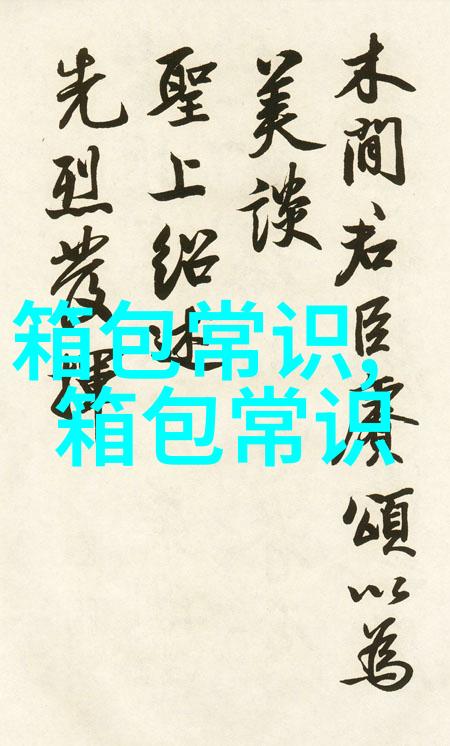 木間君臣賡頌以為
美談
聖上紹述
先烈發揮
箱包常识,
箱包常识